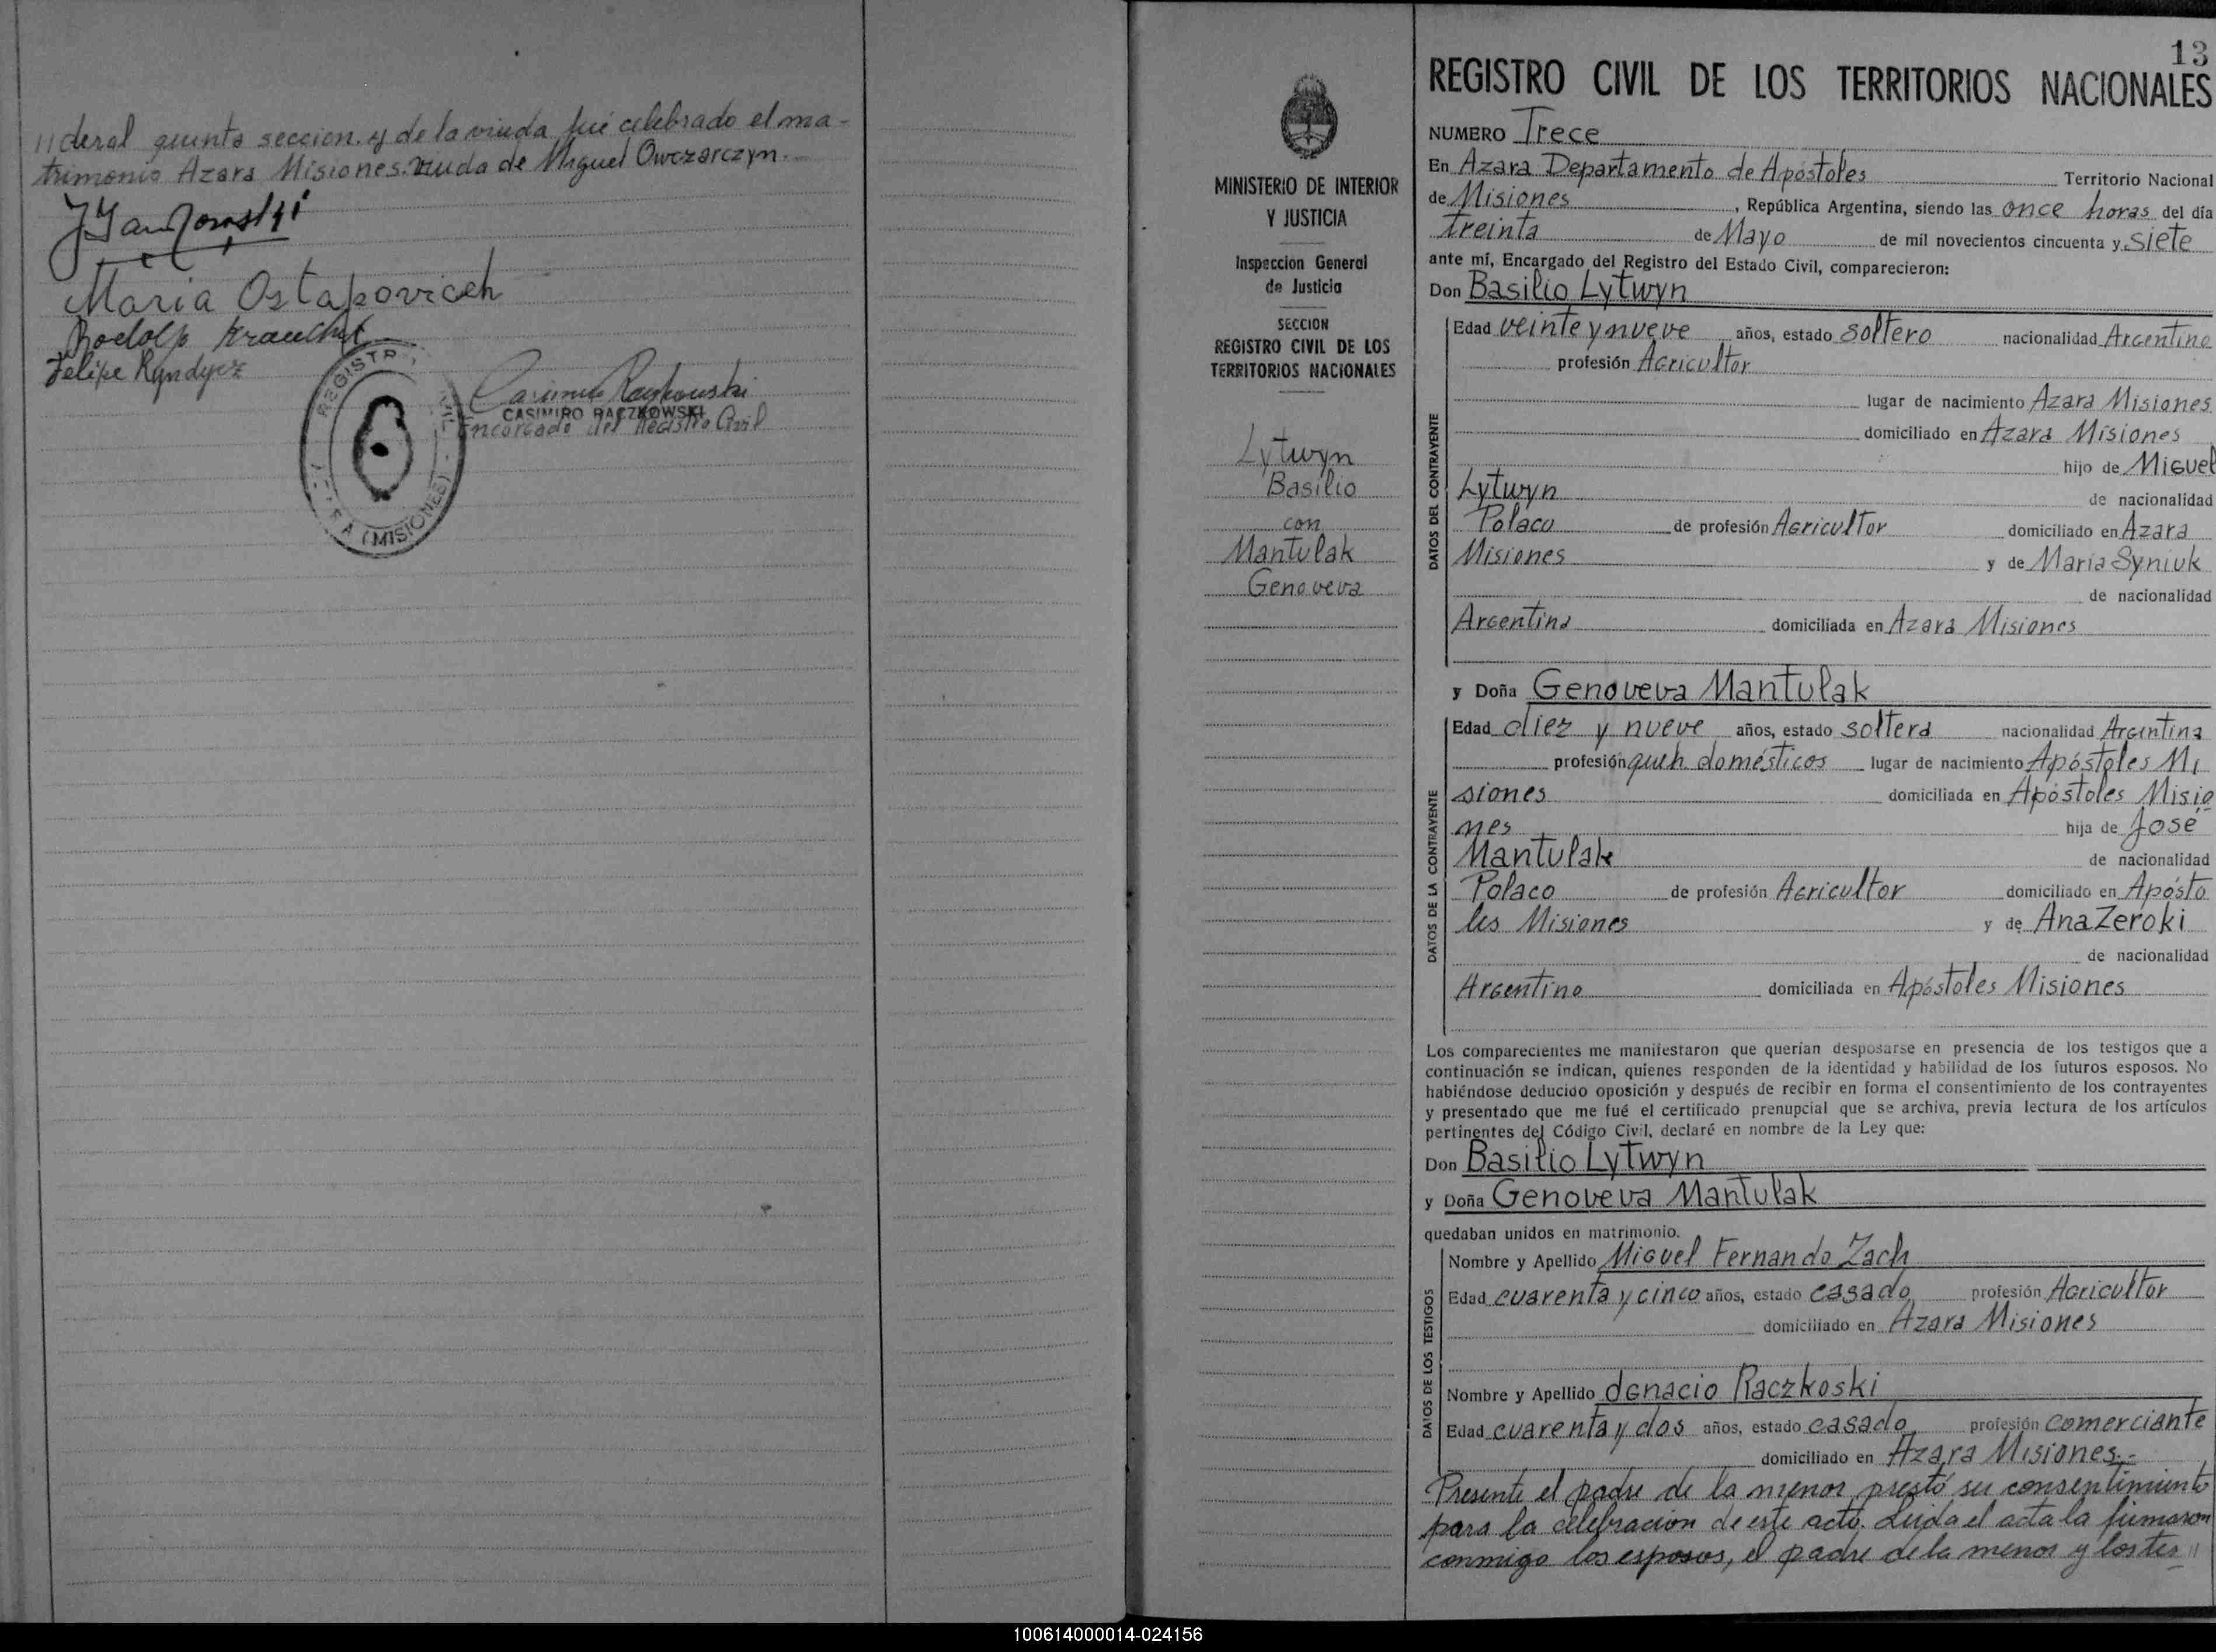 //deral quinta seccion. y de la viuda fué celebrado el ma-
trimonio Azara Misiones. viuda de Miguel Owczarczyn.-
Maria Ostapovicch
Rodolfo
Felipe Ryndycz
REGISTR
(MISIONES)
CASIMIRO RACZKOWSKI
Encargado del Registro Civil
MINISTERIO DE INTERIOR
Y JUSTICIA
Inspeccion General
de Justicia
SECCION
REGISTRO CIVIL DE LOS
TERRITORIOS NACIONALES
Lytwyn
Basilio
con
Mantulak
Genoveva
13
REGISTRO CIVIL DE LOS TERRITORIOS NACIONALES
NUMERO Trece
En Azara Departamento de Apóstoles Territorio Nacional
de Misiones, República Argentina, siendo las once horas del día
treinta de Mayo de mil novecientos cincuenta y siete
ante mí, Encargado del Registro del Estado Civil, comparecieron:
Don Basilio Lytwyn
Edad veinte y nueve años, estado soltero nacionalidad Argentino
profesión Agricultor
lugar de nacimiento Azara Misiones
domiciliado en Azara Misiones
hijo de Miguel
Lytwyn de nacionalidad
Polaco de profesión Agricultor domiciliado en Azara
Misiones y de Maria Syniuk
de nacionalidad
Argentina domiciliada en Azara Misiones
DATOS DEL CONTRAYENTE
y Doña Genoveva Mantulak
Edad diez y nueve años, estado soltera nacionalidad Argentina
profesión queh. domésticos lugar de nacimiento Apóstoles Mi
siones domiciliada en Apóstoles Misio
nes hija de José
Mantulak de nacionalidad
Polaco de profesión Agricultor domiciliado en Apósto
les Misiones y de Ana Zeroki
de nacionalidad
Argentina domiciliada en Apóstoles Misiones
DATOS DE LA CONTRAYENTE
Los comparecientes me manifestaron que querían desposarse en presencia de los testigos que a
continuación se indican, quienes responden de la identidad y habilidad de los futuros esposos. No
habiéndose deducido oposición y después de recibir en forma el consentimiento de los contrayentes
y presentado que me fué el certificado prenupcial que se archiva, previa lectura de los artículos
pertinentes del Código Civil, declaré en nombre de la Ley que:
Don Basilio Lytwyn
y Doña Genoveva Mantulak
quedaban unidos en matrimonio.
Nombre y Apellido Miguel Fernando Zach
Edad cuarenta y cinco años, estado casado profesión Agricultor
domiciliado en Azara Misiones
Nombre y Apellido Ignacio Raczkoski
Edad cuarenta y dos años, estado casado profesión comerciante
domiciliado en Azara Misiones.-
DATOS DE LOS TESTIGOS
Presente el padre de la menor prestó su consentimiento
para la celebracion de este acto. Leida el acta la firmaron
conmigo los esposos, el padre de la menor y los tes//
100614000014-024156